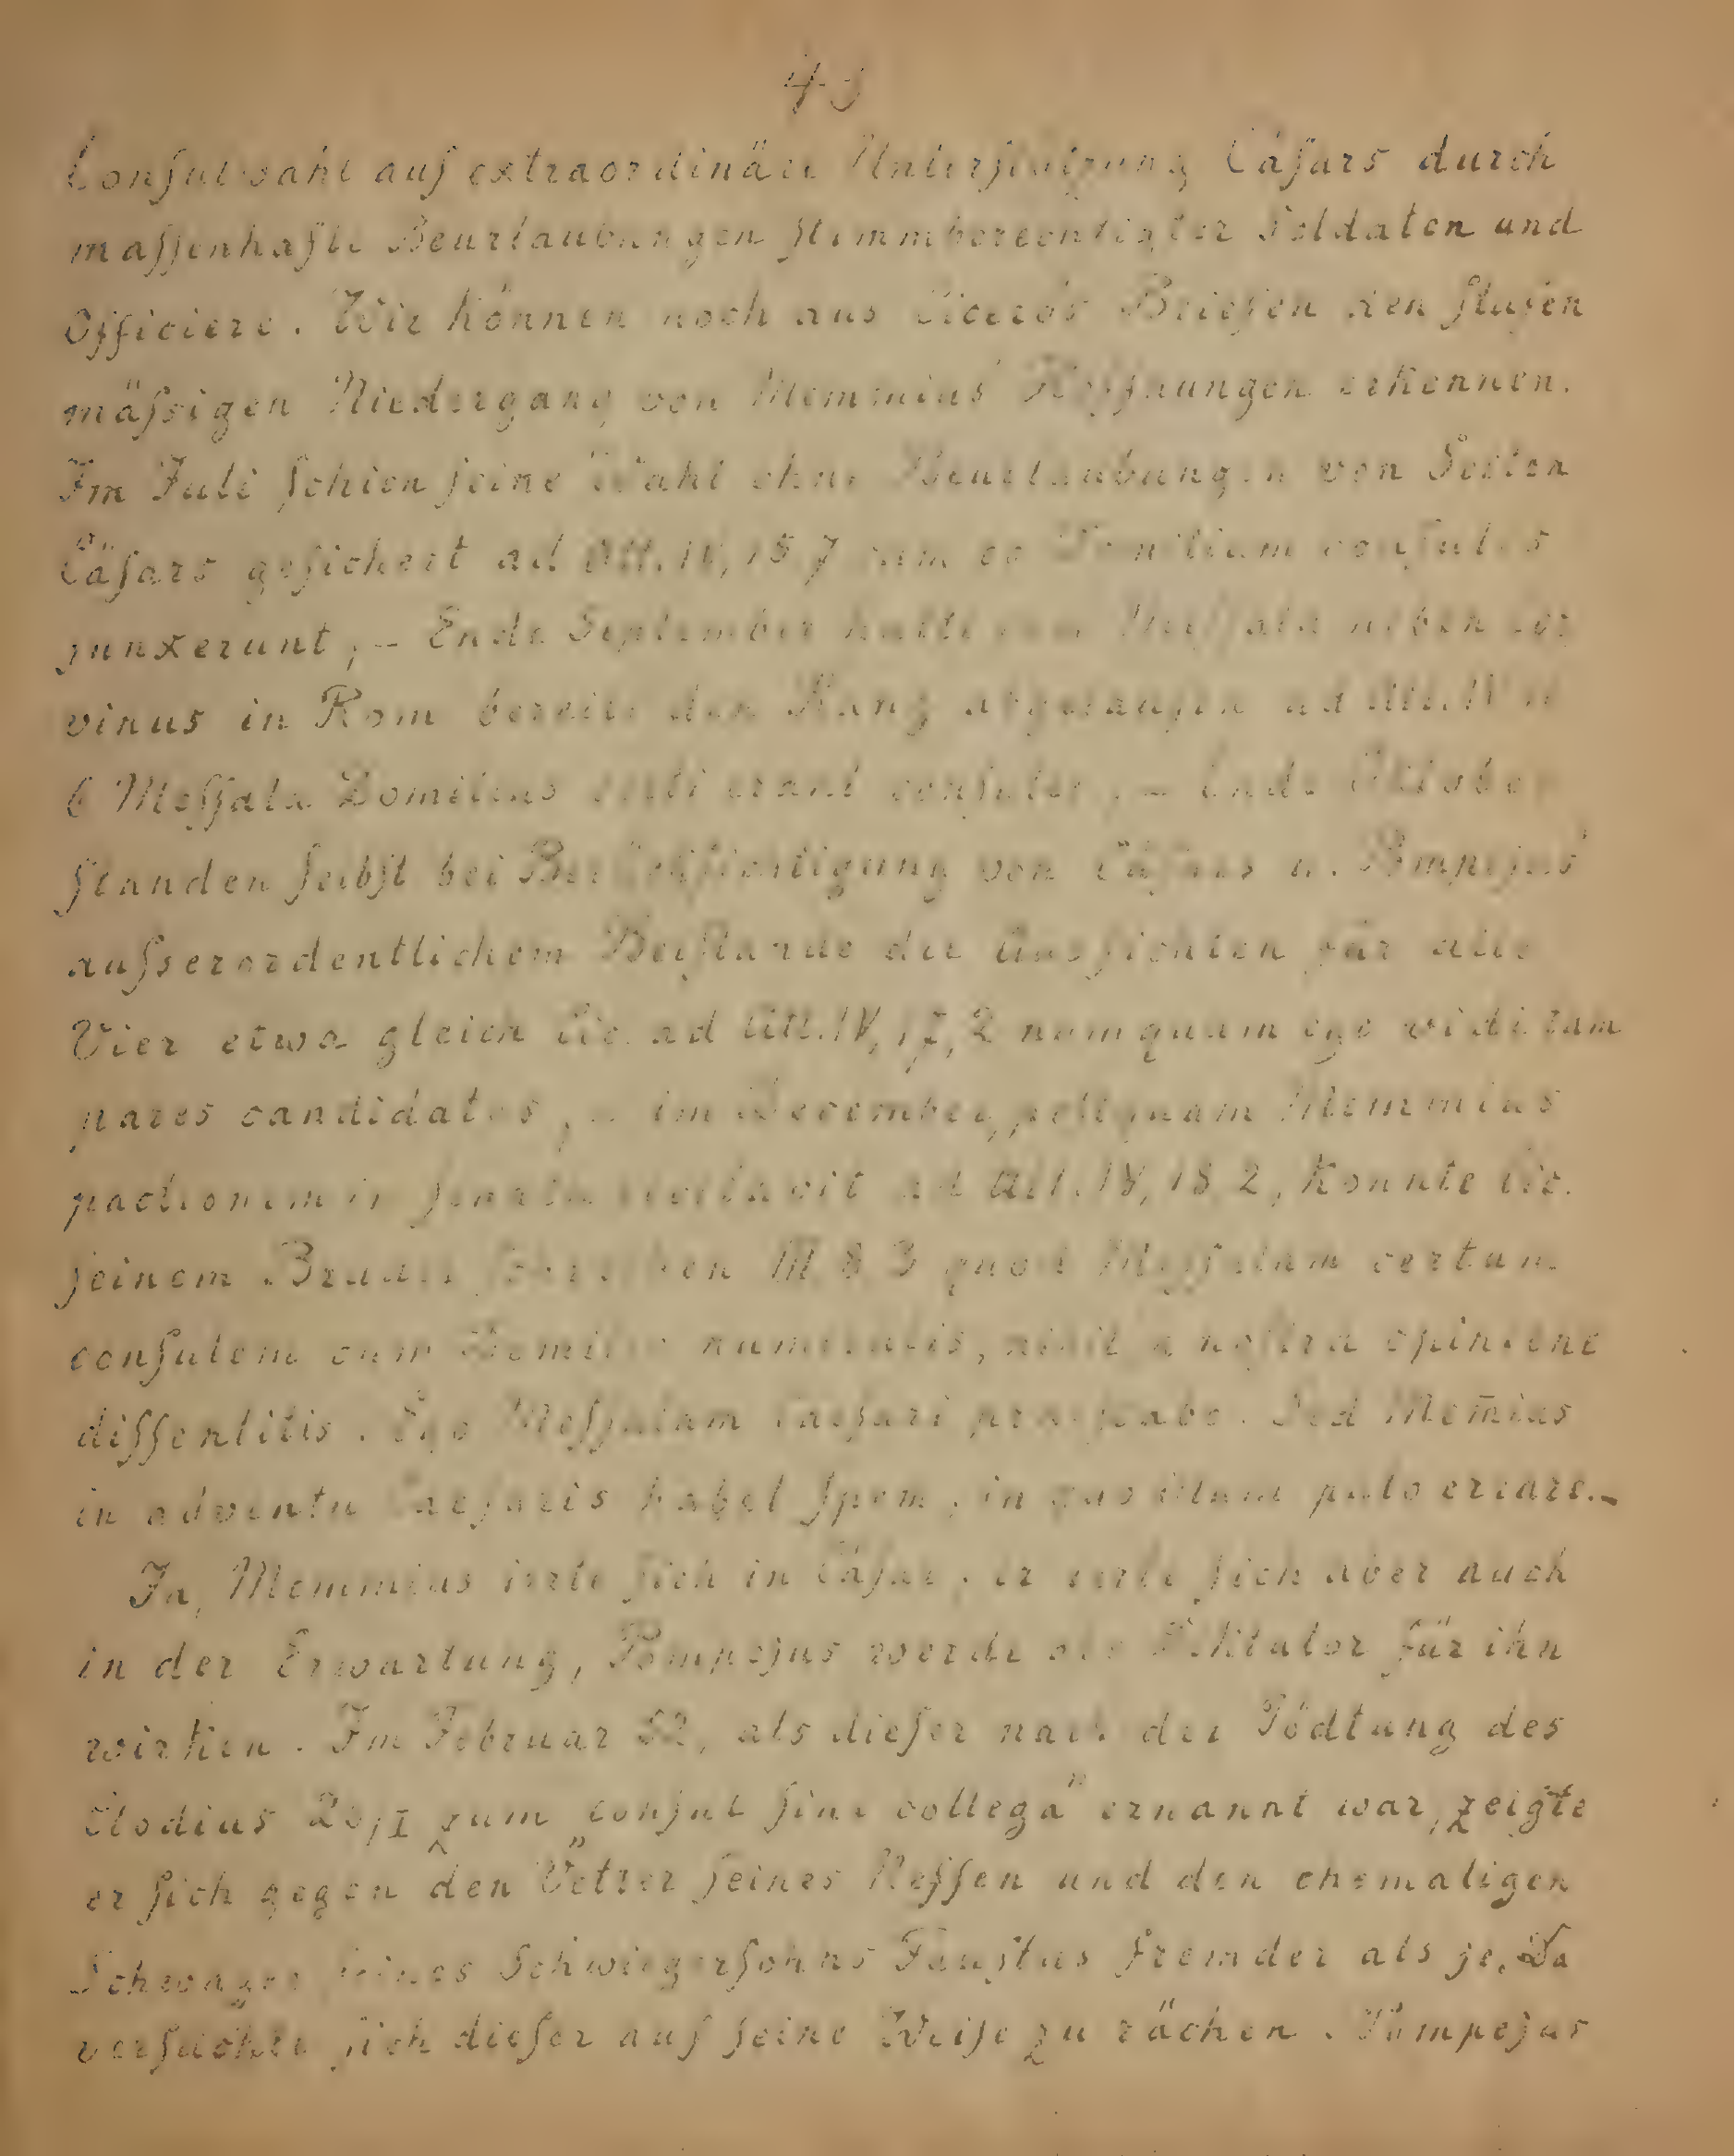 43
Consulwahl auf extraordinäre Unterstützung Cäsars durch
massenhafte Beurlaubungen stimmberechtigter Soldaten und
Officiere. Wir können noch aus Cicero's Briefen den stufen
mässigen Niedergang von Memmius' Hoffnungen erkennen.
Im Juli schien seine Wahl ohne Beurlaubungen von Seiten
Cäsars gesichert ad Att. IV, 15 7 cum eo Domitium consules
junxerunt, – Ende September hatte Messala neben
vinus in Rom bereits den Rang abgelaufen ad Att. IV
6 Messala Domitius consules, – Ende Oktober
standen selbst bei Berücksichtigung von Cäsars u. Pompejus'
ausserordentlichem Beistande die Aussichten für alle
Vier etwa gleich Cic. ad Att. IV, 17, 2 numquam ego vidi tam
pares candidatos, – im December, postquam Memmius
pactionem in senatu recitavit ad Att. IV, 18 2, konnte Cic.
seinem Bruder schreiben III 8 3 quod Messalam certum
consulem cum Domitio numeratis, nihil a nostra opinione
dissentitis. Ego Messalam Caesari praestabo. Sed Mem̄ius
in adventu Caesaris habet spem, in quo illum puto errare. –
Ja, Memmius irrte sich in Cäsar, er irrte sich aber auch
in der Erwartung, Pompejus werde als Diktator für ihn
wirken. Im Februar 52, als dieser nach der Tödtung des
Clodius 20/I zum „consul sine collega" ernannt war, zeigte
er sich gegen den Vetter seines Neffen und den ehemaligen
Schwager seines Schwiegersohns Faustus fremder als je. Da
versuchte sich dieser auf seine Weise zu rächen. Pompejus